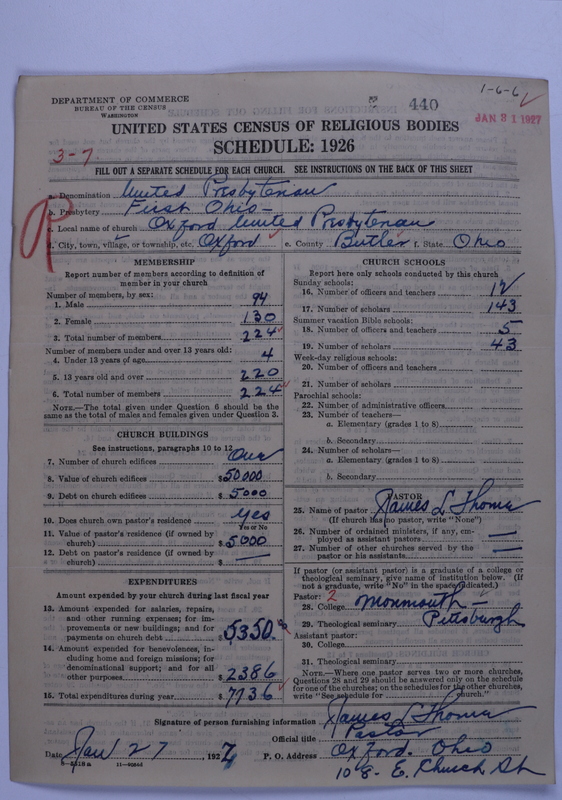 1-6-6
DEPARTMENT OF COMMERCE
BUREAU OF THE CENSUS
WASHINGTON
440
JAN 31 1927
UNITED STATES CENSUS OF RELIGIOUS BODIES
SCHEDULE: 1926
3-7
FILL OUT A SEPARATE SCHEDULE FOR EACH CHURCH. SEE INSTRUCTIONS ON THE BACK OF THIS SHEET
a. Denomination United Presbyterian
b. Presbytery First Ohio
c. Local name of church Oxford United Presbyterian
d. City, town, village, or township, etc. Oxford e. County Butler f. State Ohio
MEMBERSHIP
Report number of members according to definition of
member in your church
Number of members, by sex:
1. Male 94
2. Female 130
3. Total number of members 224
Number of members under and over 13 years old:
4. Under 13 years of age 4
5. 13 years old and over 220
6. Total number of members 224
NOTE.—The total given under Question 6 should be the
same as the total of males and females given under Question 3.
CHURCH BUILDINGS
See instructions, paragraphs 10 to 12
7. Number of church edifices One
8. Value of church edifices $50000
9. Debt on church edifices $5000
10. Does church own pastor's residence Yes
Yes or No
11. Value of pastor's residence (if owned by
church) $5000
12. Debt on pastor's residence (if owned by
church) $ —
EXPENDITURES
Amount expended by your church during last fiscal year
13. Amount expended for salaries, repairs,
and other running expenses; for im-
provements or new buildings; and for
payments on church debt $5350.00
14. Amount expended for benevolences, in-
cluding home and foreign missions; for
denominational support; and for all
other purposes $2386
15. Total expenditures during year $7736
CHURCH SCHOOLS
Report here only schools conducted by this church
Sunday schools:
16. Number of officers and teachers 12
17. Number of scholars 143
Summer vacation Bible schools:
18. Number of officers and teachers 5
19. Number of scholars 43
Week-day religious schools:
20. Number of officers and teachers
21. Number of scholars
Parochial schools:
22. Number of administrative officers
23. Number of teachers—
a. Elementary (grades 1 to 8)
b. Secondary
24. Number of scholars—
a. Elementary (grades 1 to 8)
b. Secondary
PASTOR
25. Name of pastor James L Thome
(If church has no pastor, write "None")
26. Number of ordained ministers, if any, em-
ployed as assistant pastors —
27. Number of other churches served by the
pastor or his assistants —
If pastor (or assistant pastor) is a graduate of a college or
theological seminary, give name of institution below. (If
not a graduate, write "No" in the space indicated.)
Pastor: 2
28. College Monmouth —
29. Theological seminary Pittsburgh
Assistant pastor:
30. College
31. Theological seminary
NOTE.—Where one pastor serves two or more churches,
Questions 28 and 29 should be answered only on the schedule
for one of the churches; on the schedules for the other churches,
write "See schedule for church."
Signature of person furnishing information James L Thome
Official title Pastor
Date Jan 27, 1927 P. O. Address Oxford, Ohio
108. E. Church St